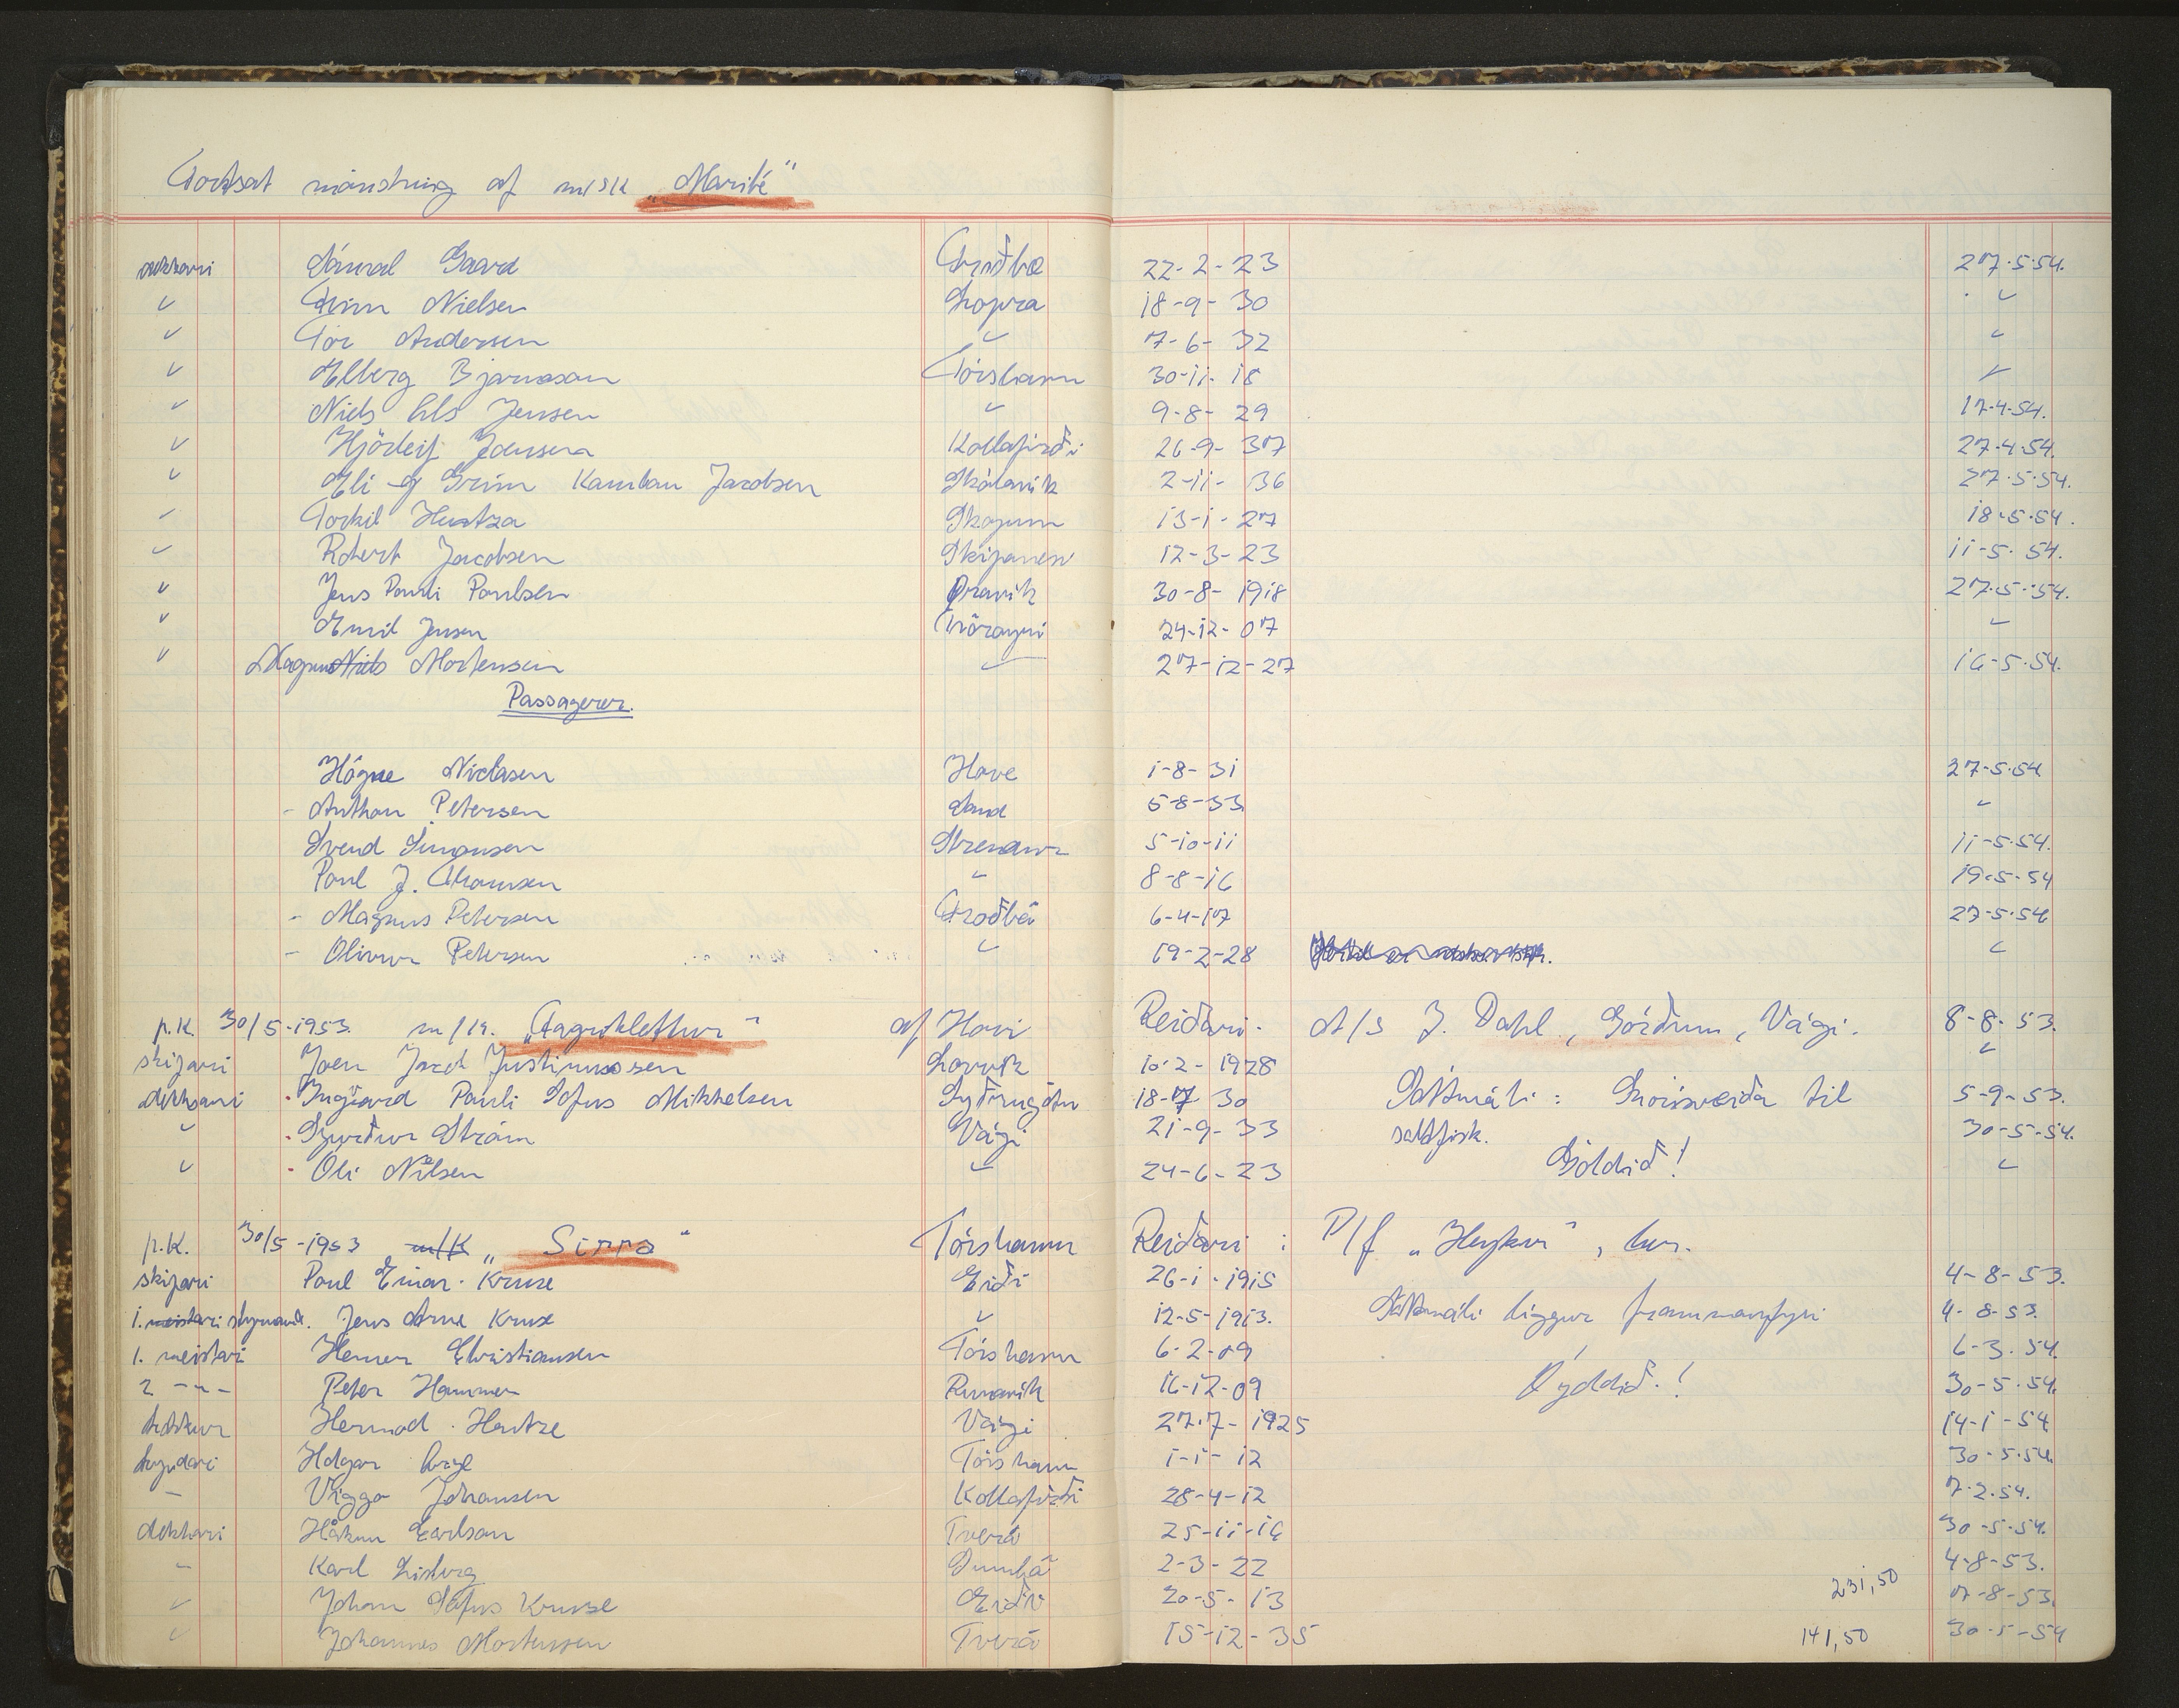 Fortsat mönstring af m/sk „Marité"
dekkari Sámal Gaard Froðba 22-2-23 27.5.54.
" Finn Nielsen Lopra 18-9-30 "
" Tór Andersen " 7-6-32 "
" Elberg Bjarnason Tórshavn 30-11-18 "
" Niels Jensen " 9-8-29 17.4.54.
" Hjörleif Joensen Kollafirði 26-9-37 27.4.54.
" Eli Grim Kamban Jacobsen Skálavik 2-11-36 27.5.54.
" Torkil Hentza Skopun 13-1-27 18.5.54.
" Robert Jacobsen Skipanes 12-3-23 11-5.54.
" Jens Pauli Poulsen Øravik 30-8-1918 27.5.54.
" Emil Jensen Tvöroyri 24-12-07 "
" Magnus Niels Mortensen " 27-12-27 16-5.54.
Passagerer.
Högne Niclasen Hove 1-8-31 27-5.54
- Anthon Petersen Sand 5-8-33 "
Svend Simonsen Strendur 5-10-11 11-5.54.
Poul J. Thomsen " 8-8-16 19.5.54
- Magnus Petersen Froðbö 6-4-17 27-5.54
- Olivur Petersen " 19-2-28 "
p.K. 30/5-1953. m/k. „Fagriklettur" af Hovi Reiðari. A/s J. Dahl, Görðum, Vági. 8-8-53.
skipari Joen Jacob Justinussen Lorvik 10-2-1928 "
dekkari - Ingvard Pauli Sofus Mikkelsen Syðrugøtu 18-7 30 Sáttmáli: Snörisveiða til 5-9-53.
" - Sjurður Strøm Vági 21-9-33 saltfisk. 30-5-54.
" - Oli Nilsen " 24-6-23 Góldið! "
p.K. 30/5-1953 m/k „Sirra" Tórshavn Reiðari: P/f „Heykur", her.
skipari Poul Einar Kruse Eiði 26-1-1915 4-8-53.
1. meistari stýrmand. Jens Arne Kruse " 12-5-1913. Sáttmáli liggur frammanfyri 4-8-53.
1. meistari Hemer Christiansen Tórshavn 6-2-09 6-3.54.
2 -"- Peter Hammer Runavik 16-12-09 Gýddið.! 30-5.54.
kokkur Hermod Hentze Vági 27.7-1925 14-1-54
kyndari Holgar Tórshavn 1-1-12 30-5.54.
- Viggo Johansen Kollafirði 28-4-12 7.2.54.
dekkari Håkun Carlson Tverá 25-11-16 30-5.54.
- Karl Lisberg Funnbø 2-3-22 4-8-53.
" Johan Sofus Kruse Eiði 20-5-13 231,50 7-8-53.
" Johannes Mortensen Tverá 15-12-35 141,50 30-5-54